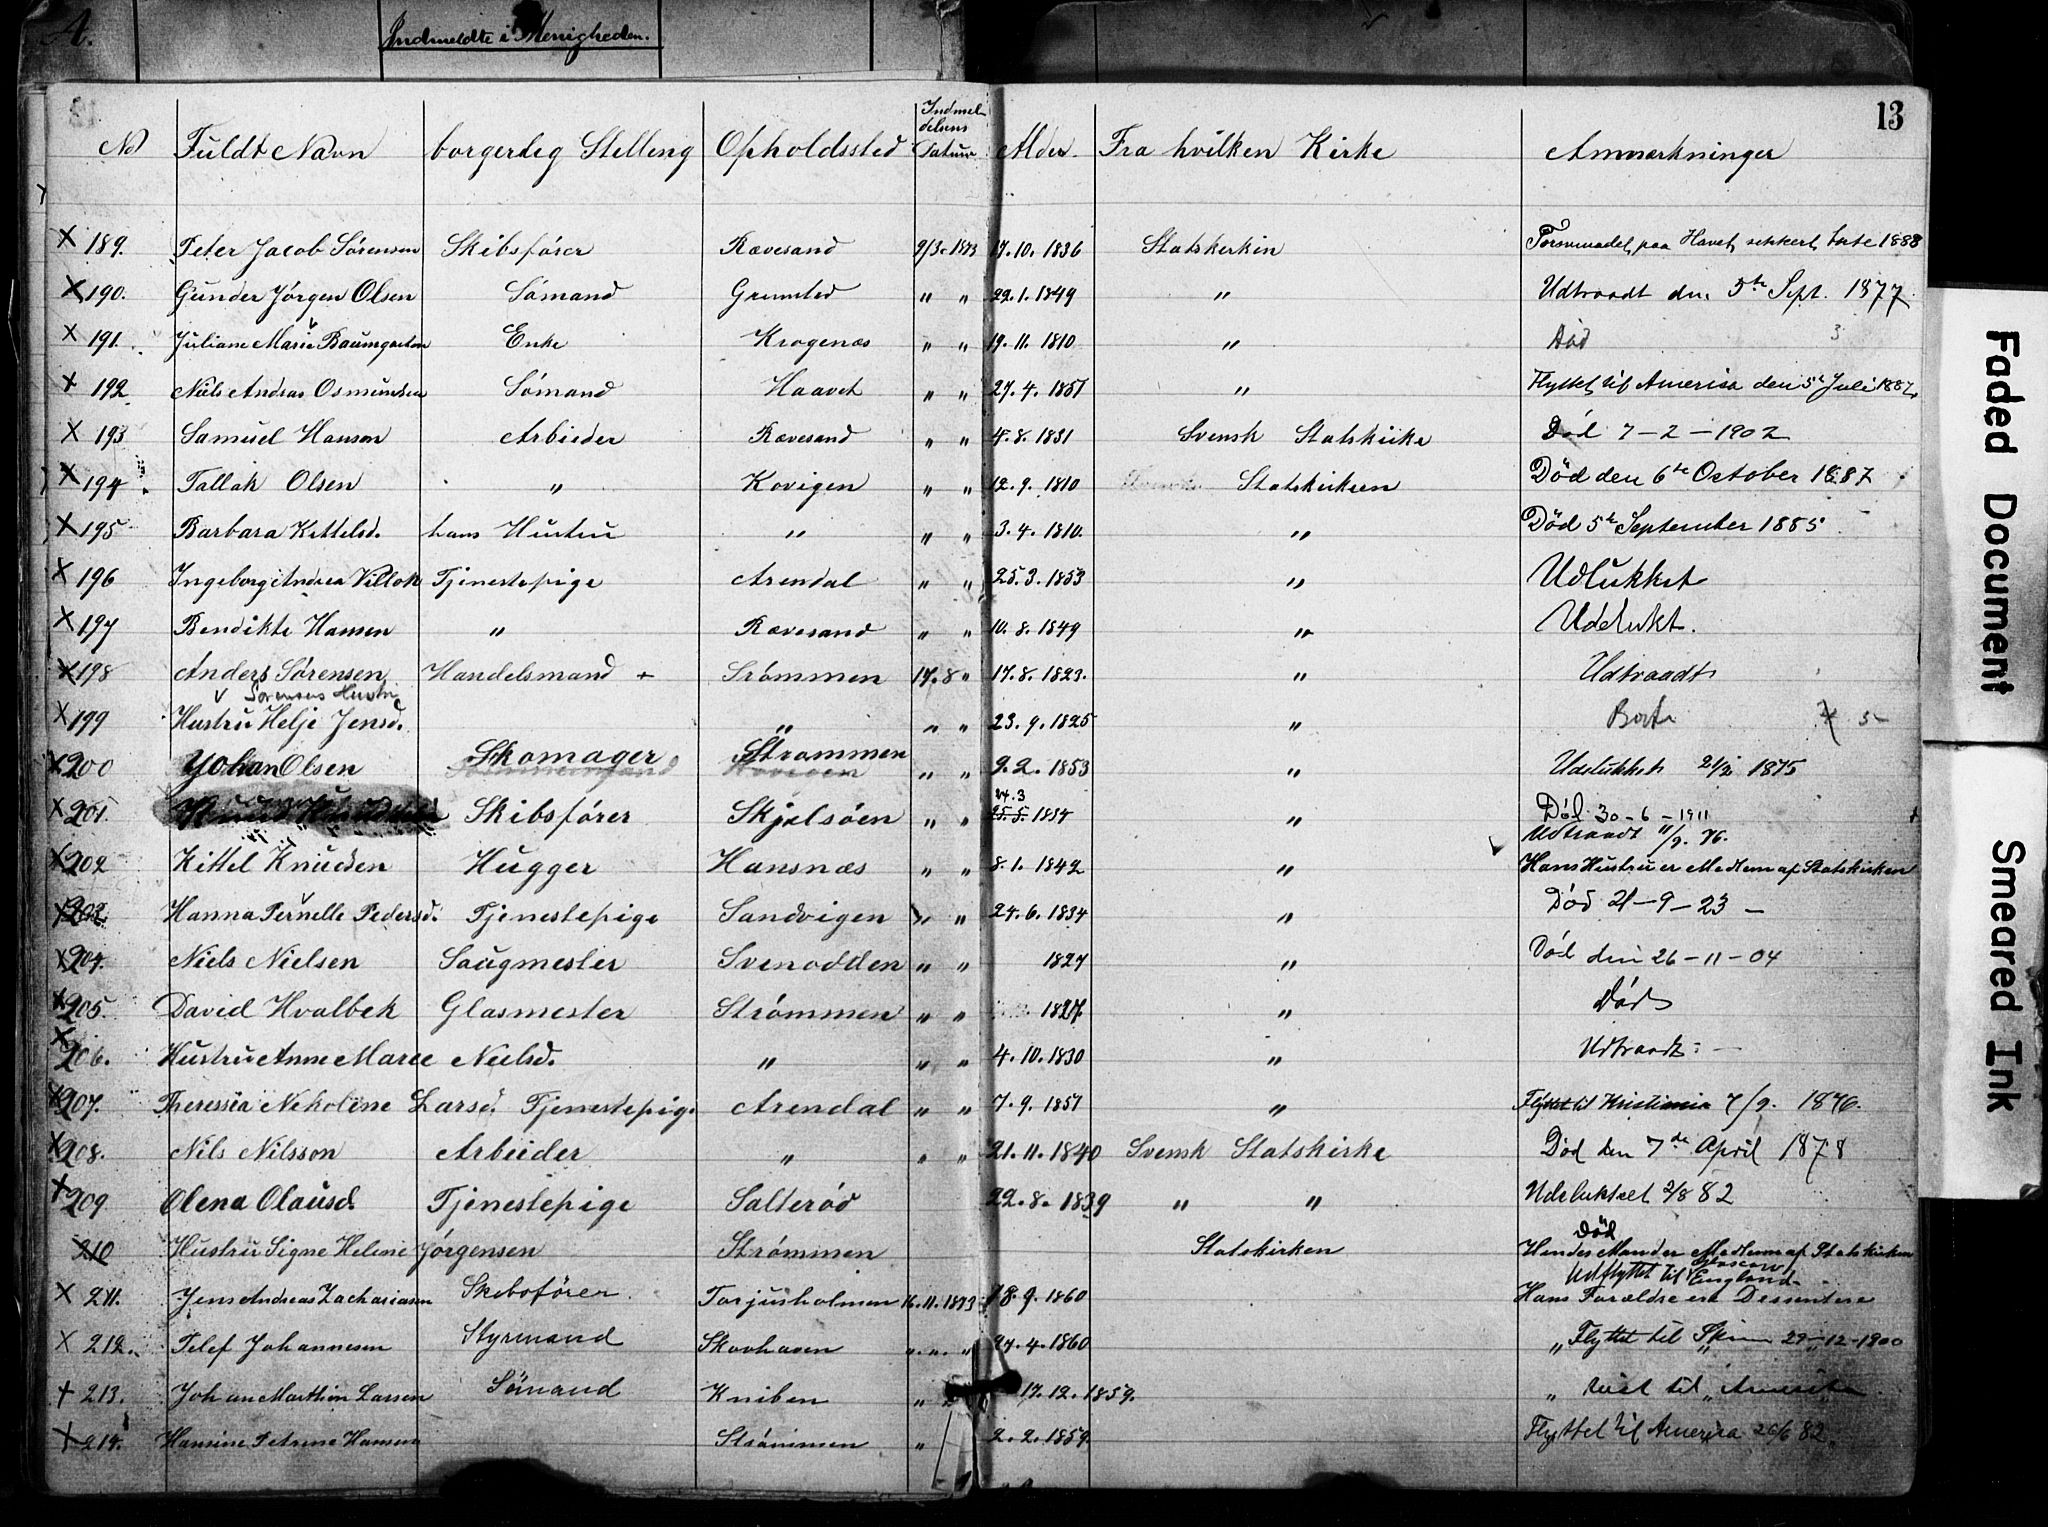 A. Indmeldte i Menigheden.
13
No Fuldt Navn borgerlig Stelling Opholdssted Indmeldelsens Datum Alder. Fra hvilken Kirke Anmærkninger
X 189. Peter Jacob Sørensen Skibsfører Rævesand 9/3-1873 17.10.1836 Statskirkin Forsvundet paa Havet sikkert 1888
X 190. Gunder Jørgen Olsen Sømand Grimsted " " 22.1.1849 " Udtraadt den 5te Sept. 1877
X 191. Juliane Marie Baumgarten Enke Krogenæs " " 19.11.1810 " Død 3
+ 192 Niels Andras Osmundsen Sømand Haavet " " 27.4.1851 " Flyttet til Amerika den 5te Juli 1882
X 193 Samuel Hanson Arbeider Rævesand " " 4.8.1831 Svensk Statskirke Død 7-2-1902
X 194. Tallak Olsen " Kovigen " " 12.9.1810 Statskirken Død den 6te October 1887
X 195 Barbara Kittelsd. hans Hustru " " " 3.4.1810. " Død 5te September 1885
X 196 Ingeborg Andrea Villok Tjenestepige Arendal " " 25.3.1853 " Udlukket
X 197 Bendikte Hansen " Rævesand " " 10.8.1849 " Udelukt.
X 198 Anders Sørensen Handelsmand + Strømmen 17.8 " 17.8.1823. " Udtraadt
V Sørensens Hustru
X 199 Hustru Helje Jensd. " " " 23.9.1825 " Borte 5
X 200 Johan Olsen Skomager Strømmen " " 9.2.1853 " Udelukket 1875
X 201. Knud Knudsen Skibsfører Skjelsöen " " 24.3 25.5.1834 " Død 30-6-1911
Udtraadt 11/9.76.
X 202 Kittel Knudsen Hugger Hansnæs " " 8.1.1842 " Hans Hustru er Medlem af Statskirken
X 203. Hanna Pernelle Pedersd. Tjenestepige Sandvigen " " 24.6.1834 " Død 21-9-23 -
X 204. Niels Nielsen Saugmester Svenodden " " 1827 " Død den 26-11-04
X 205. David Hvalbek Glasmester Strømmen " " 1827. " Død
X 206. Hustru Anne Marie Nielsd. " " " 4.10.1830 " Udtraadt: -
X 207. Theressia Nekoline Larsd. Tjenestepige Arendal " " 7.9.1851 " Flyttet til Kristiania 7/9. 1876.
X 208. Nils Nilsson Arbeider " " " 21.11.1840 Svensk Statskirke Død den 7de April 1878
+ 209 Olena Olausd. Tjenestepige Salterød 22.8.1839 " " Udeluktet 2/8 82
Død
210 Hustru Signe Helene Jørgensen Strømmen Statskirken Hendes Mand er Medlem af Statskirken
Udflyttet til Glascow England
X 211. Jens Andreas Zachariasen Skibsfører Torjusholmen 16.11.1873 18.9.1860 Hans Forældre ere Dessentere
X 212. Telef Johannesen Styrmand Skovhaven " " " 27.4.1860 " Flyttet til Skien 29-12-1900
+ 213. Johan Marthin Larsen Sömand Kniben " " 17.12.1859. " reist til Amerika
+ 214. Hansine Petrine Hansen Strømmen " 2.2.1859. Flyttet til Amerika 26/6 82.
Faded Document
Smeared Ink